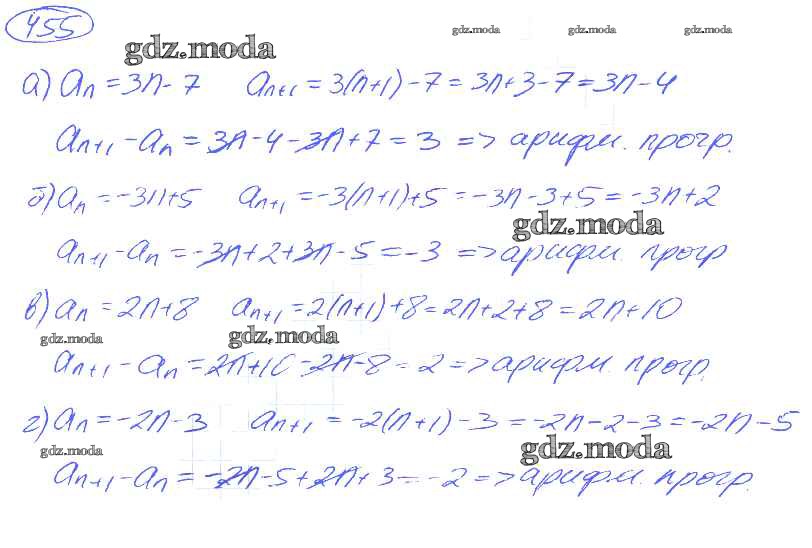 455
gdz.moda gdz.moda gdz.moda gdz.moda
а) aₙ = 3n - 7 aₙ₊₁ = 3(n+1) - 7 = 3n + 3 - 7 = 3n - 4
aₙ₊₁ - aₙ = 3n - 4 - 3n + 7 = 3 => арифм. прогр.
б) aₙ = -3n + 5 aₙ₊₁ = -3(n+1) + 5 = -3n - 3 + 5 = -3n + 2
gdz.moda
aₙ₊₁ - aₙ = -3n + 2 + 3n - 5 = -3 => арифм. прогр
в) aₙ = 2n + 8 aₙ₊₁ = 2(n+1) + 8 = 2n + 2 + 8 = 2n + 10
gdz.moda gdz.moda
aₙ₊₁ - aₙ = 2n + 10 - 2n - 8 = 2 => арифм. прогр.
г) aₙ = -2n - 3 aₙ₊₁ = -2(n+1) - 3 = -2n - 2 - 3 = -2n - 5
gdz.moda gdz.moda
aₙ₊₁ - aₙ = -2n - 5 + 2n + 3 = -2 => арифм. прогр.